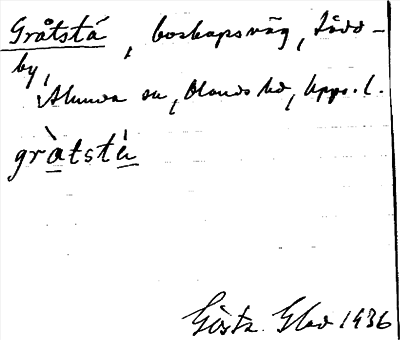 Gråtstå, boskapsväg, Lådd-
by,
Alunda sn, Olands hd, Upps. l.
gròtstà
Gösta Glad 1936